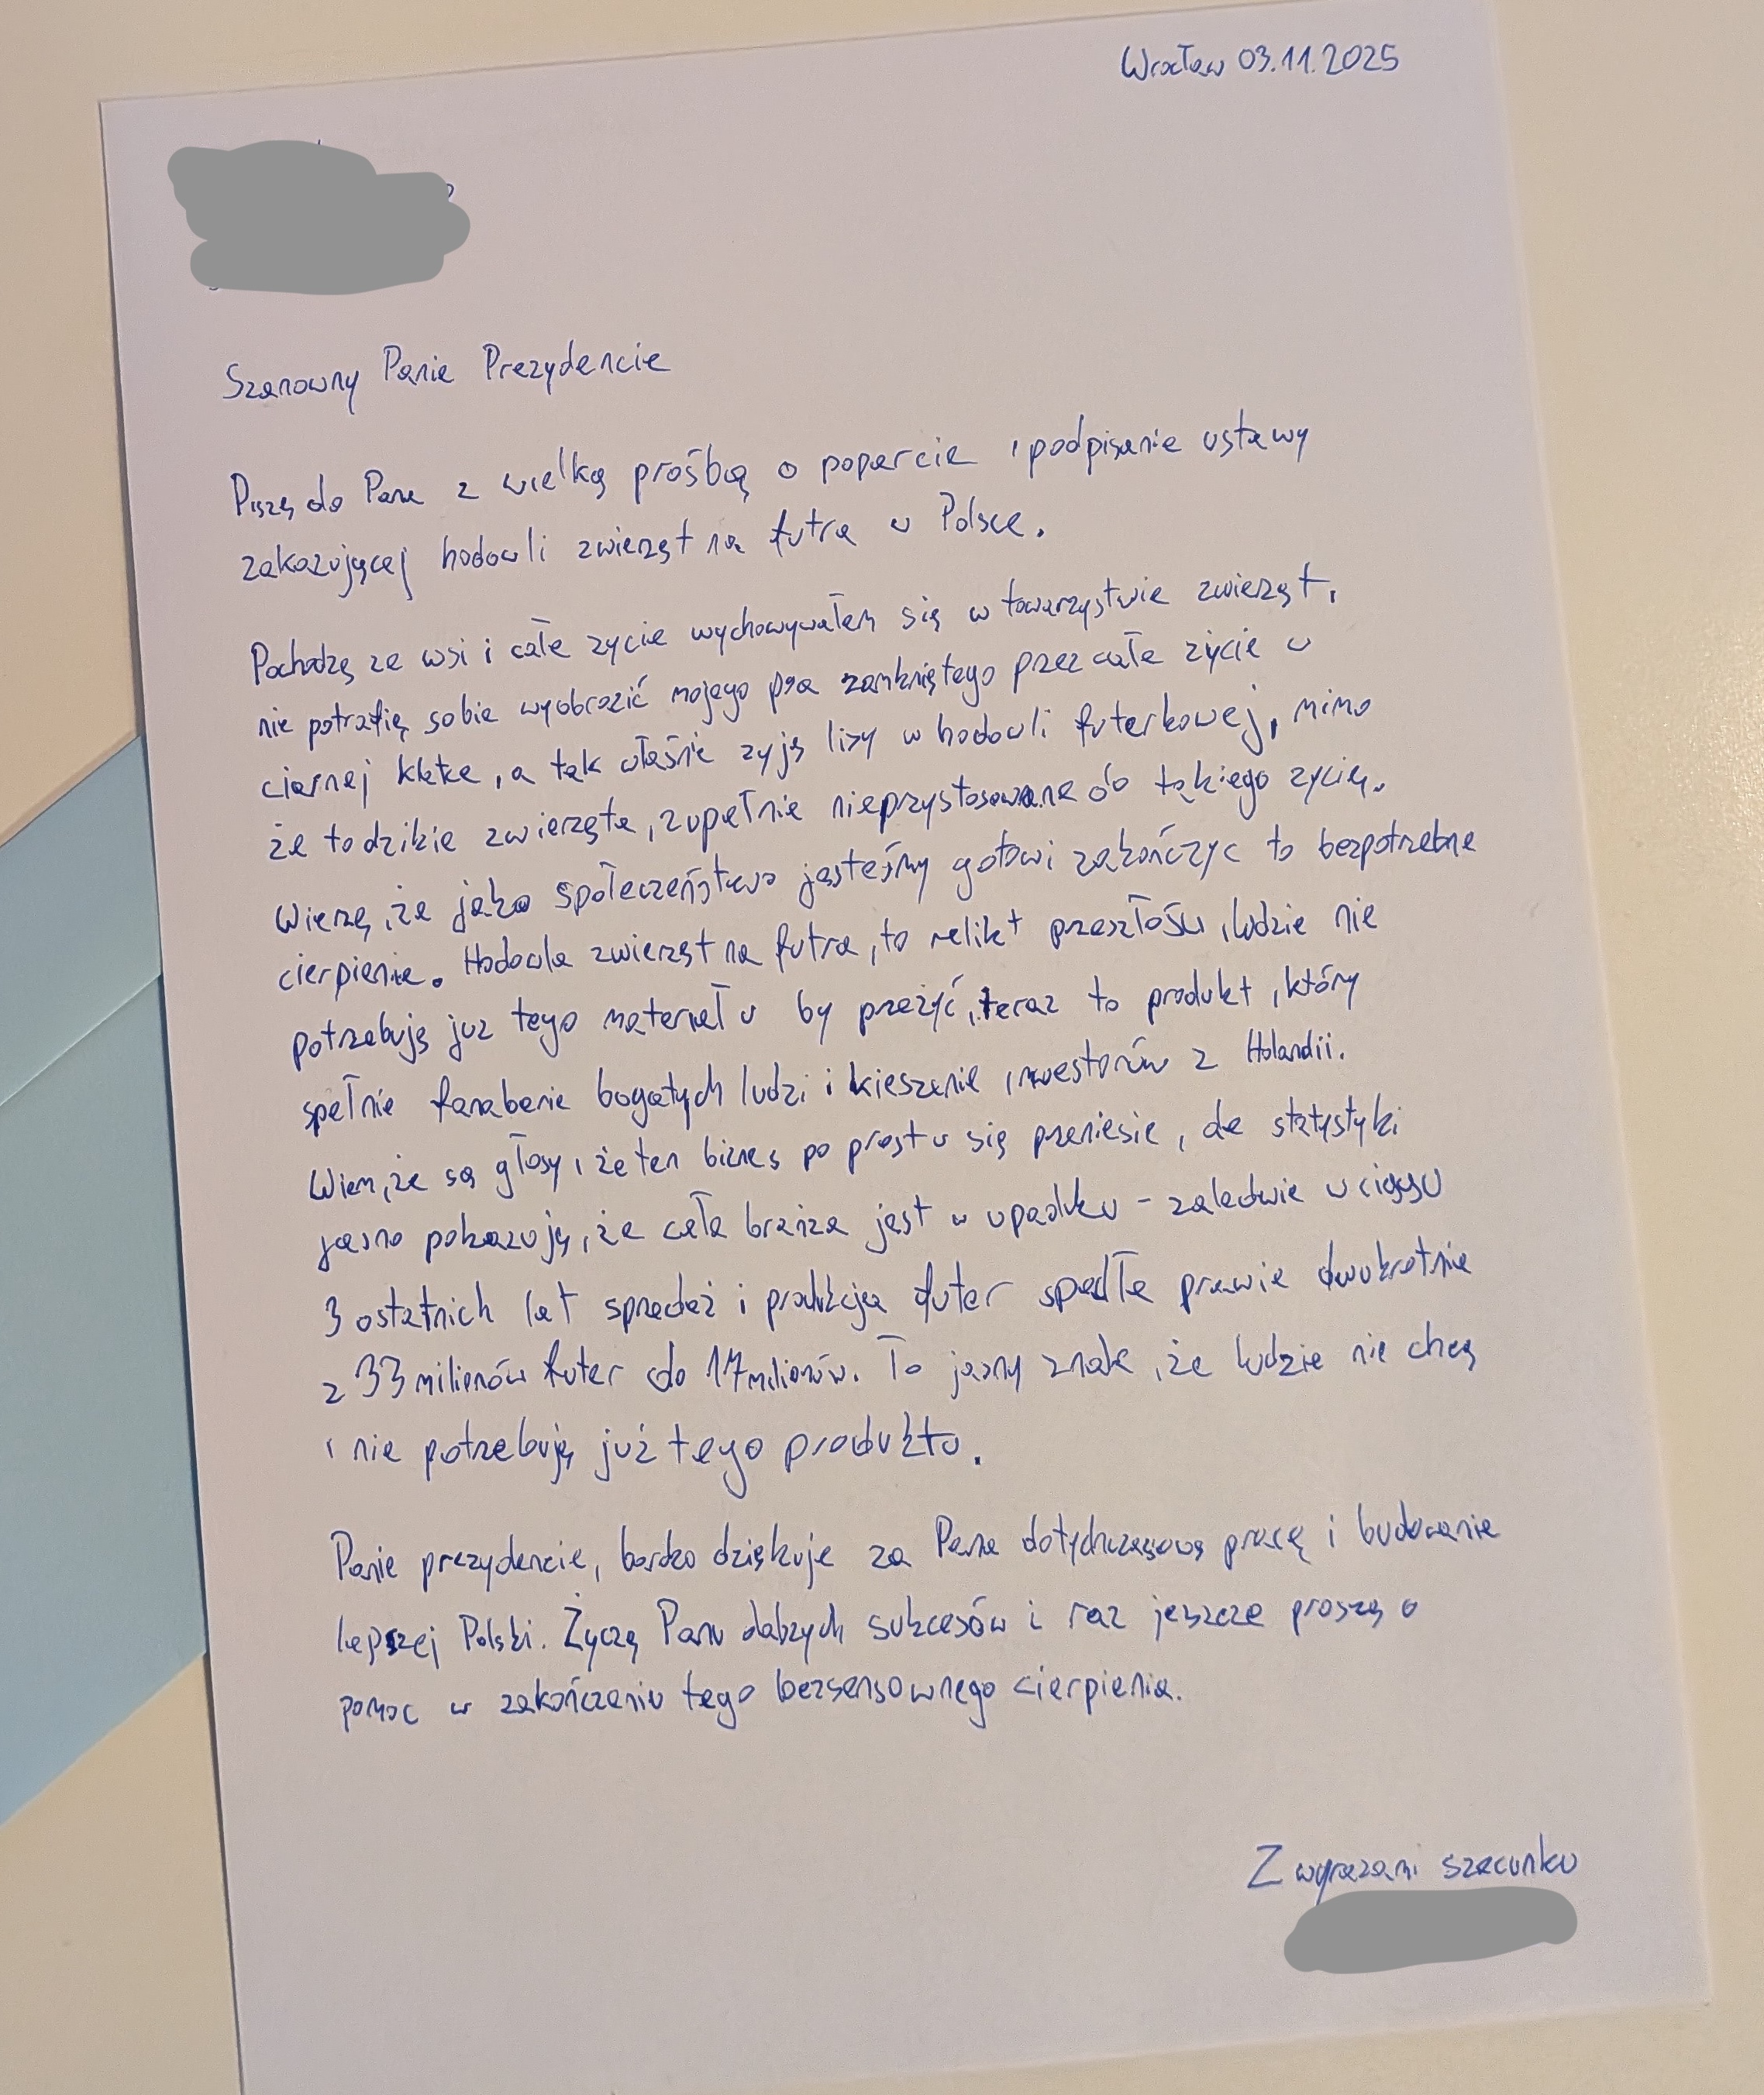 Wrocław 03.11.2025
Szanowny Panie Prezydencie
Piszę do Pana z wielką prośbą o poparcie i podpisanie ustawy
zakazującej hodowli zwierząt na futra w Polsce.
Pochodzę ze wsi i całe zycie wychowywałem się w towarzystwie zwierząt,
nie potrafię sobie wyobrazić mojego psa zamkniętego przez całe życie w
ciasnej klatce, a tak właśnie zyją lisy w hodowli futerkowej, mimo
że to dzikie zwierzęta, zupełnie nieprzystosowane do takiego zycia.
Wierzę, że jako społeczeństwo jesteśmy gotowi zakończyc to bezpotrzebne
cierpienie. Hodowla zwierząt na futra, to relikt przeszłości, ludzie nie
potrzebują juz tego materiału by przeżyć, teraz to produkt, który
spełnia fanaberie bogatych ludzi i kieszenie inwestorów z Holandii.
Wiem, że są głosy, że ten biznes po prostu się przeniesie, ale statystyki
jasno pokazują, że cała branża jest w upadku - zaledwie w ciągu
3 ostatnich lat sprzedaż i produkcja futer spadła prawie dwukrotnie
z 33 milionów futer do 17 milionów. To jasny znak, że ludzie nie chcą
i nie potrzebują już tego produktu.
Panie prezydencie, bardzo dziękuje za Pana dotychczasową pracę i budowanie
lepszej Polski. Życzę Panu dalszych sukcesów i raz jeszcze proszę o
pomoc w zakończeniu tego bezsensownego cierpienia.
Z wyrazami szacunku